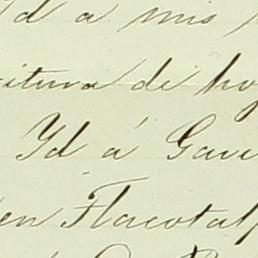 Yd a mis
critura de ho
Yd á Gau
en Flacotal